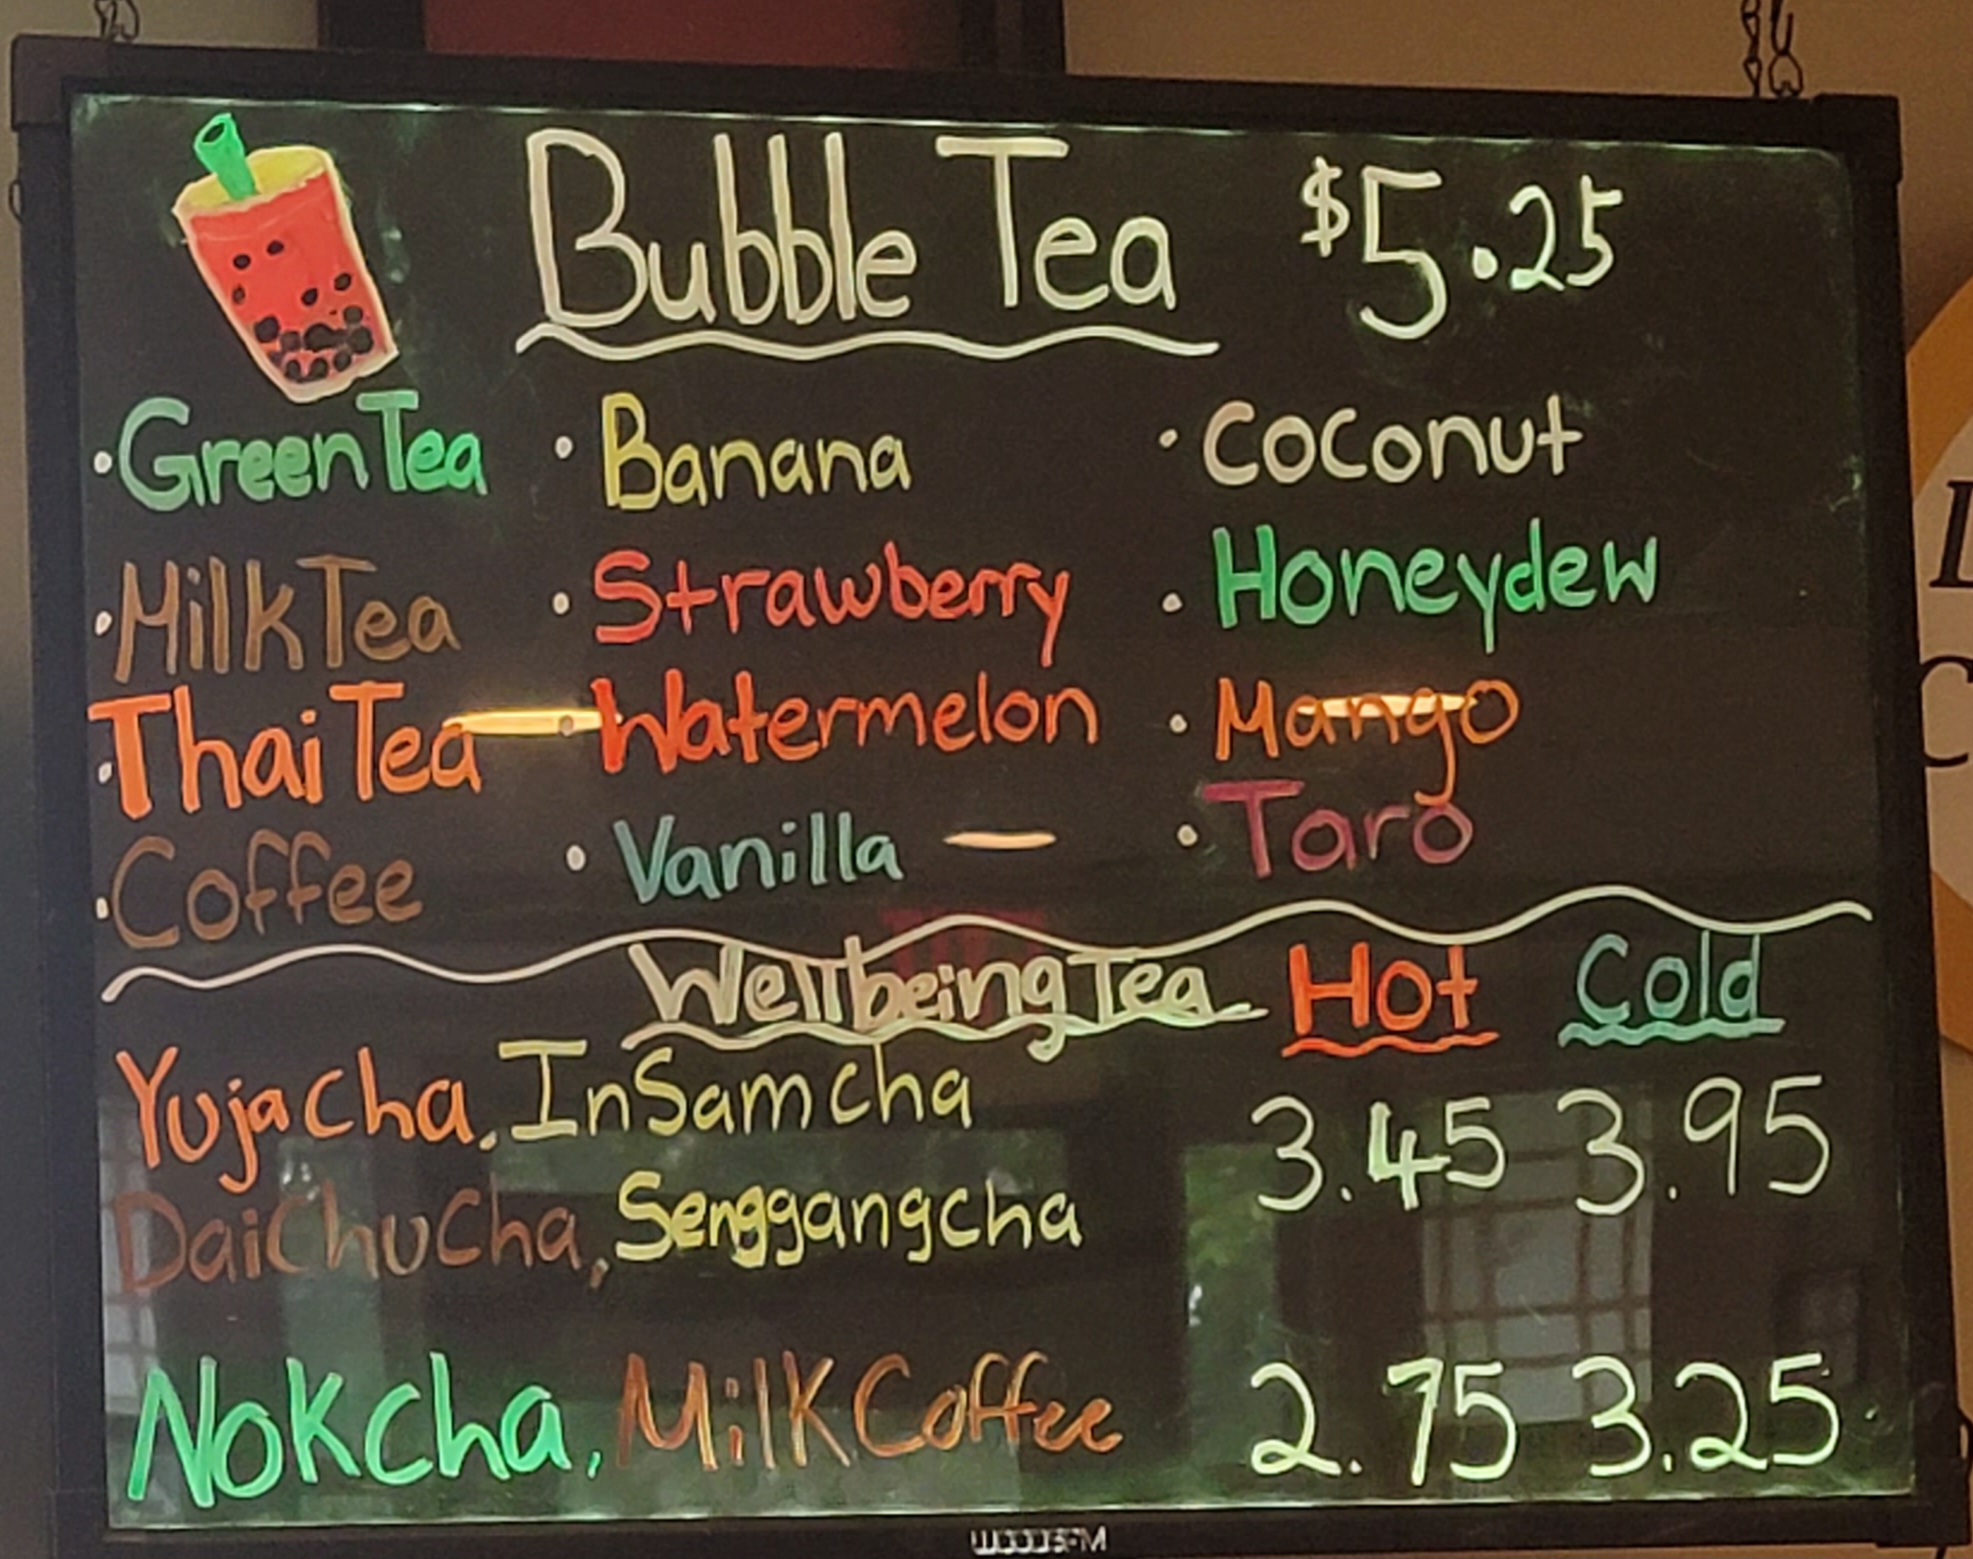 Bubble Tea $5.25
·Green Tea ·Banana ·Coconut
·Milk Tea ·Strawberry ·Honeydew
·Thai Tea ·Watermelon ·Mango
·Coffee ·Vanilla ·Taro
Wellbeing Tea Hot Cold
Yujacha, InSamcha 3.45 3.95
DaiChuCha, Senggangcha
Nokcha, Milk Coffee 2.75 3.25